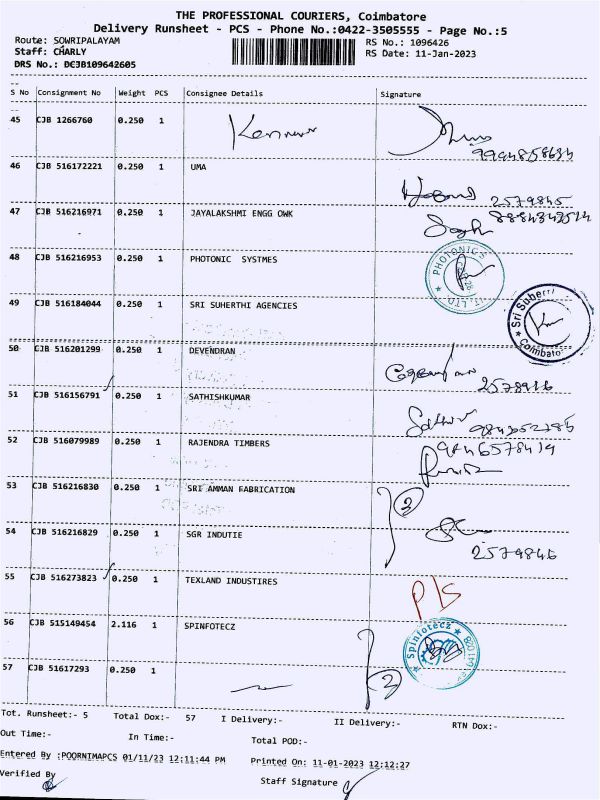 THE PROFESSIONAL COURIERS, Coimbatore
Delivery Runsheet - PCS - Phone No.:0422-3505555 - Page No.:5
Route: SOWRIPALAYAM
RS No.: 1096426
Staff: CHARLY
RS Date: 11-Jan-2023
DRS No.: DCJB109642605
S No Consignment No Weight PCS Consignee Details Signature
45 CJB 1266760 0.250 1
46 CJB 516172221 0.250 1 UMA
2579845
47 CJB 516216971 0.250 1 JAYALAKSHMI ENGG OWK
48 CJB 516216953 0.250 1 PHOTONIC SYSTMES
PHOTONICS
49 CJB 516184044 0.250 1 SRI SUHERTHI AGENCIES
Sri Suher
Coimbator
50 CJB 516201299 0.250 1 DEVENDRAN
51 CJB 516156791 0.250 1 SATHISHKUMAR
52 CJB 516079989 0.250 1 RAJENDRA TIMBERS
9846578419
53 CJB 516216830 0.250 1 SRI AMMAN FABRICATION
2
54 CJB 516216829 0.250 1 SGR INDUTIE
2579846
55 CJB 516273823 0.250 1 TEXLAND INDUSTIRES
P/S
56 CJB 515149454 2.116 1 SPINFOTECZ
Spinfotecz
57 CJB 51617293 0.250 1
2
Tot. Runsheet:- 5 Total Dox:- 57 I Delivery:- II Delivery:- RTN Dox:-
Out Time:- In Time:- Total POD:-
Entered By :POORNIMAPCS 01/11/23 12:11:44 PM Printed On: 11-01-2023 12:12:27
Verified By Staff Signature